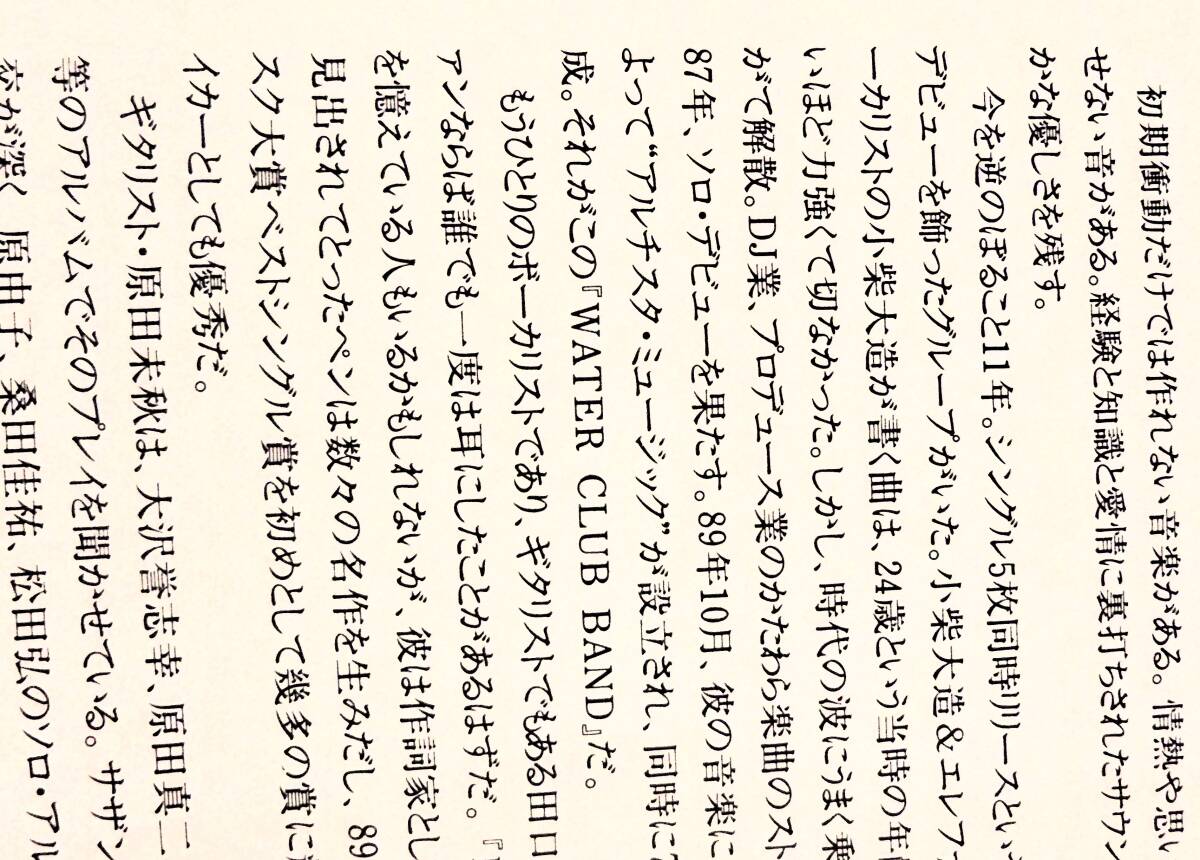 初期衝動だけでは作れない音楽がある。情熱や思い
せない音がある。経験と知識と愛情に裏打ちされたサウン
かな優しさを残す。
今を逆のぼること11年。シングル5枚同時リリースとい
デビューを飾ったグループがいた。小柴大造&エレファ
ーカリストの小柴大造が書く曲は、24歳という当時の年
いほど力強くて切なかった。しかし、時代の波にうまく乗
がて解散。DJ業、プロデュース業のかたわら楽曲のスト
87年、ソロ・デビューを果たす。89年10月、彼の音楽に
よって“アルチスタ・ミュージック”が設立され、同時に
成。それがこの『WATER CLUB BAND』だ。
もうひとりのボーカリストであり、ギタリストでもある田口
ァンならば誰でも一度は耳にしたことがあるはずだ。『
を憶えている人もいるかもしれないが、彼は作詞家とし
見出されてとったペンは数々の名作を生みだし、89
スク大賞ベストシングル賞を初めとして幾多の賞に
イカーとしても優秀だ。
ギタリスト・原田末秋は、大沢誉志幸、原田真二
等のアルバムでそのプレイを聞かせている。サザン
交が深く、原由子、桑田佳祐、松田弘のソロ・アル